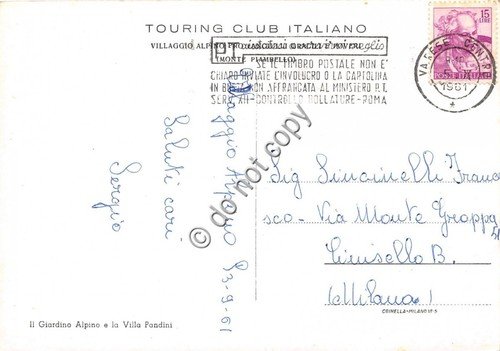 TOURING CLUB ITALIANO
VILLAGGIO ALPINO
(MONTE PIAMBELLO)
aiutateci a servirvi meglio
SE IL TIMBRO POSTALE NON È
CHIARO INVIATE L'INVOLUCRO O LA CARTOLINA
IN BUSTA NON AFFRANCATA AL MINISTERO P.T.
SERV. XII-CONTROLLO BOLLATURE-ROMA
15
LIRE
POSTE ITALIANE
VARESE CENTRO
1961
Villaggio Alpino 23-9-61
Saluti cari
Sergio
Sig Simonelli France
sco - Via Monte Grappa
Cinisello B.
(Milano)
GRINELLA-MILANO
Il Giardino Alpino e la Villa Pandini
© do not copy